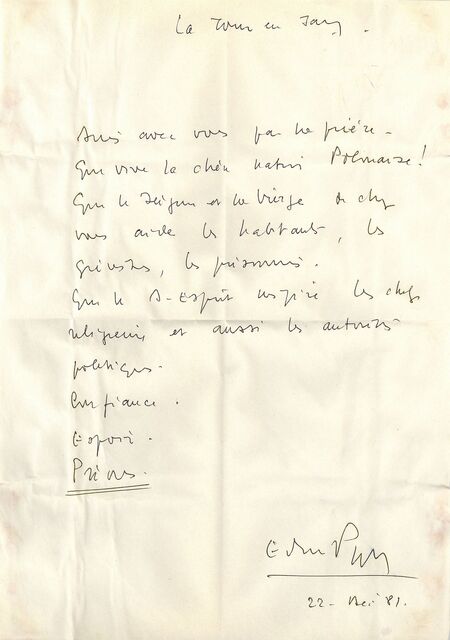 La Tour en Jarez.
Suis avec vous par la prière.
Que vive la chère nation Polonaise!
Que le Seigneur et la Vierge de chez
vous aide les habitants, les
grévistes, les prisonniers.
Que le St-Esprit inspire les chefs
religieux et aussi les autorités
politiques.
Confiance.
Espoir.
Prions.
22 - 81.